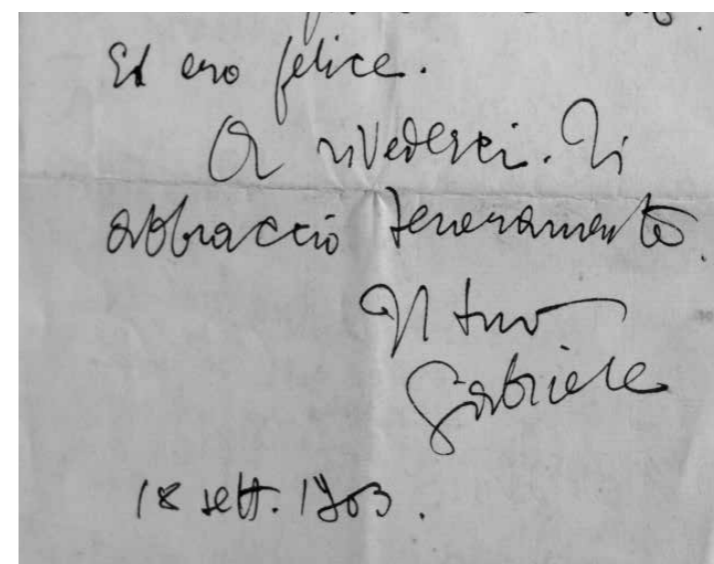 Ed ero felice.
A rivederci. Ti
abbraccio teneramente.
Il tuo
Gabriele
18 sett. 1903.